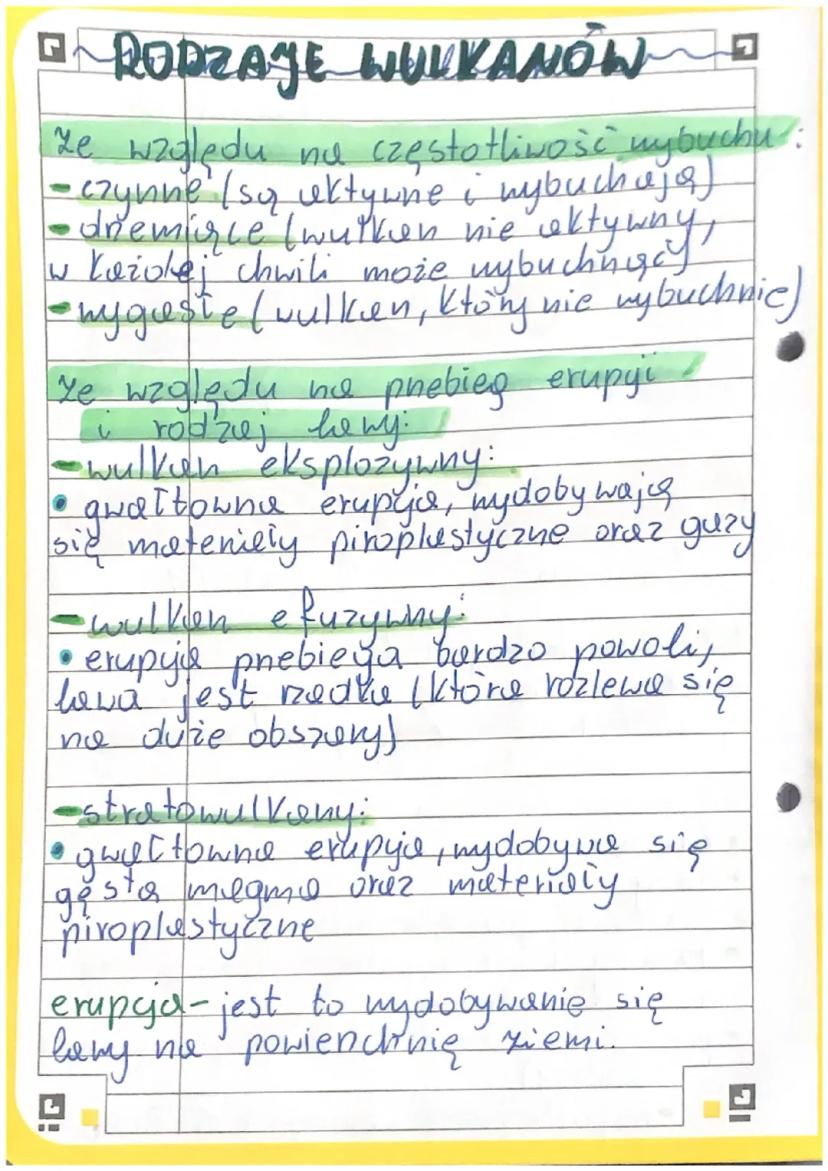 RODZAJE WULKANÓW
Ze względu na częstotliwość wybuchu:
- czynne (są aktywne i wybuchają)
- drzemiące (wulkan nie aktywny,
w każdej chwili może wybuchnąć)
- wygasłe (wulkan, który nie wybuchnie)
Ze względu na przebieg erupyji
i rodzaj lawy:
- wulkan eksplozywny:
• gwałtowna erupyja, wydobywają
się materiały piroplastyczne oraz gazy
- wulkan efuzywny:
• erupyja przebiega bardzo powoli,
lawa jest rzadka (która rozlewa się
na duże obszary)
- stratowulkany:
• gwałtowna erupyja, wydobywa się
gęsta magma oraz materiały
piroplastyczne
erupcja - jest to wydobywanie się
lawy na powierzchnię ziemi.